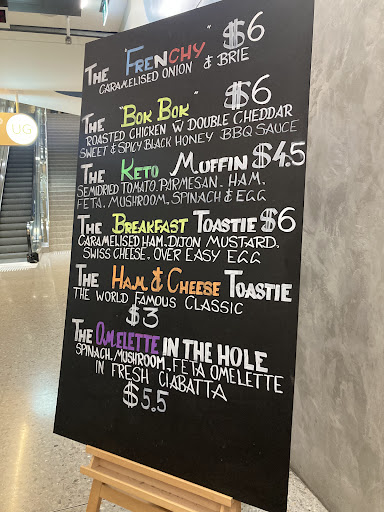 The "Frenchy" $6
Caramelised onion & Brie
The "Bok Bok" $6
Roasted chicken w double cheddar
Sweet & spicy black honey BBQ sauce
The Keto Muffin $4.5
Semidried tomato. Parmesan. Ham.
Feta. Mushroom. Spinach & egg
The Breakfast Toastie $6
Caramelised ham. Dijon mustard.
Swiss cheese. Over easy egg
The Ham & Cheese Toastie
The world famous classic
$3
The Omelette in the Hole
Spinach. Mushroom. Feta omelette
in fresh ciabatta
$5.5
UG